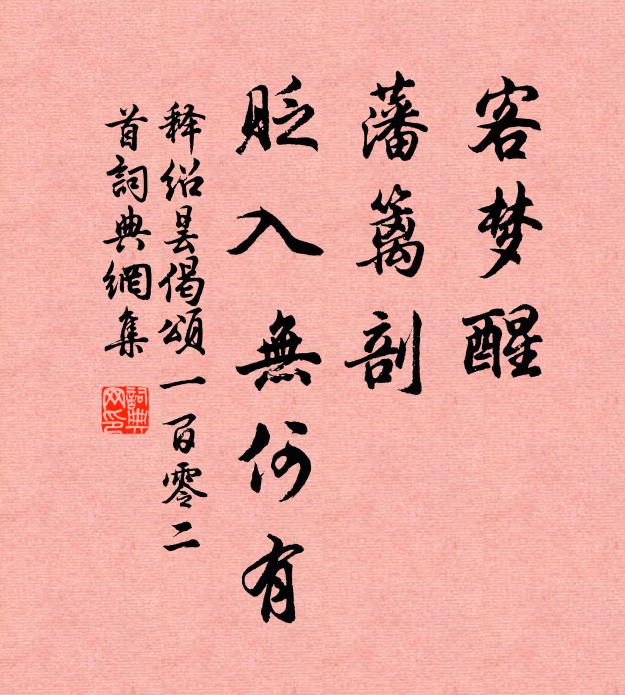 客梦醒
藩篱剖
眨入無何有
释绍昙偈頌一百零二
首詞典網集
詞典網印